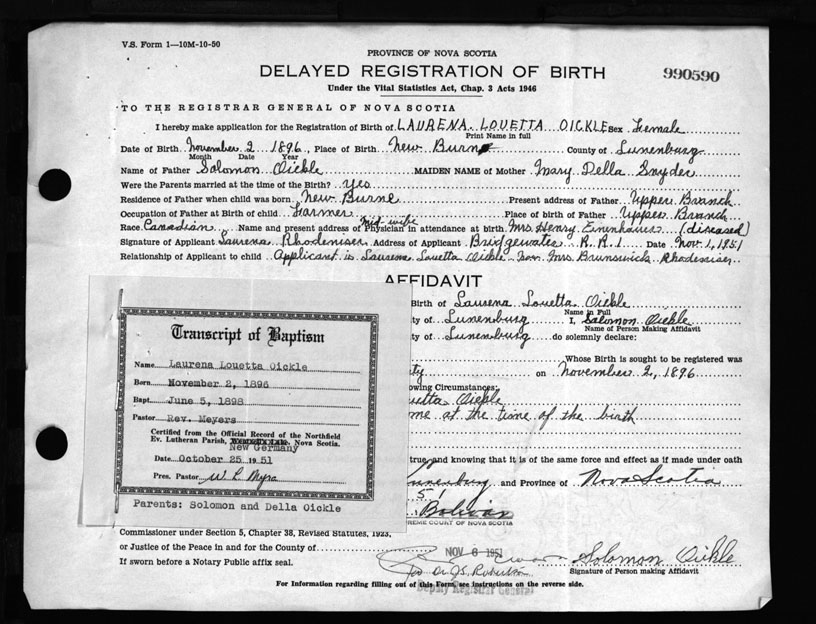 V.S. Form 1—10M-10-50
PROVINCE OF NOVA SCOTIA
DELAYED REGISTRATION OF BIRTH
990590
Under the Vital Statistics Act, Chap. 3 Acts 1946
TO THE REGISTRAR GENERAL OF NOVA SCOTIA
I hereby make application for the Registration of Birth of LAURENA LOUETTA OICKLE Sex Female
Print Name in full
Date of Birth November 2 1896, Place of Birth New Burn County of Lunenburg
Month Date Year
Name of Father Solomon Oickle MAIDEN NAME of Mother Mary Della Snyder
Were the Parents married at the time of the Birth? Yes
Residence of Father when child was born New Burne Present address of Father Upper Branch
Occupation of Father at Birth of child Farmer Place of Birth of Father Upper Branch
mid-wife
Race Canadian Name and present address of Physician in attendance at birth Mrs Henry (diseased)
Signature of Applicant Laurena Rhodeniser Address of Applicant Bridgewater R.R.1 Date Nov. 1, 1951
Relationship of Applicant to child Applicant is Laurena Louetta Oickle - now Mrs Brunswick Rhodeniser
AFFIDAVIT
Birth of Laurena Louetta Oickle
Name in Full
ty of Lunenburg I, Solomon Oickle
Name of Person Making Affidavit
ty of Lunenburg do solemnly declare:
Whose Birth is sought to be registered was
ty on November 2, 1896
owing Circumstances:
uetta Oickle
me at the time of the birth
true and knowing that it is of the same force and effect as if made under oath
nenburg and Province of Nova Scotia
51
Bolivar
REME COURT OF NOVA SCOTIA
Transcript of Baptism
Name Laurena Louetta Oickle
Born November 2, 1896
Bapt. June 5, 1898
Pastor Rev. Meyers
Certified from the Official Record of the Northfield
Ev. Lutheran Parish, Nova Scotia.
New Germany
Date October 25 1951
Pres. Pastor W L Myra
Parents: Solomon and Della Oickle
Commissioner under Section 5, Chapter 38, Revised Statutes, 1923,
or Justice of the Peace in and for the County of
NOV 6 1951
Solomon Oickle
If sworn before a Notary Public affix seal.
Dr J.S. Robertson
Signature of Person making Affidavit
For Information regarding filling out of this Form, see instructions on the reverse side.
Deputy Registrar General